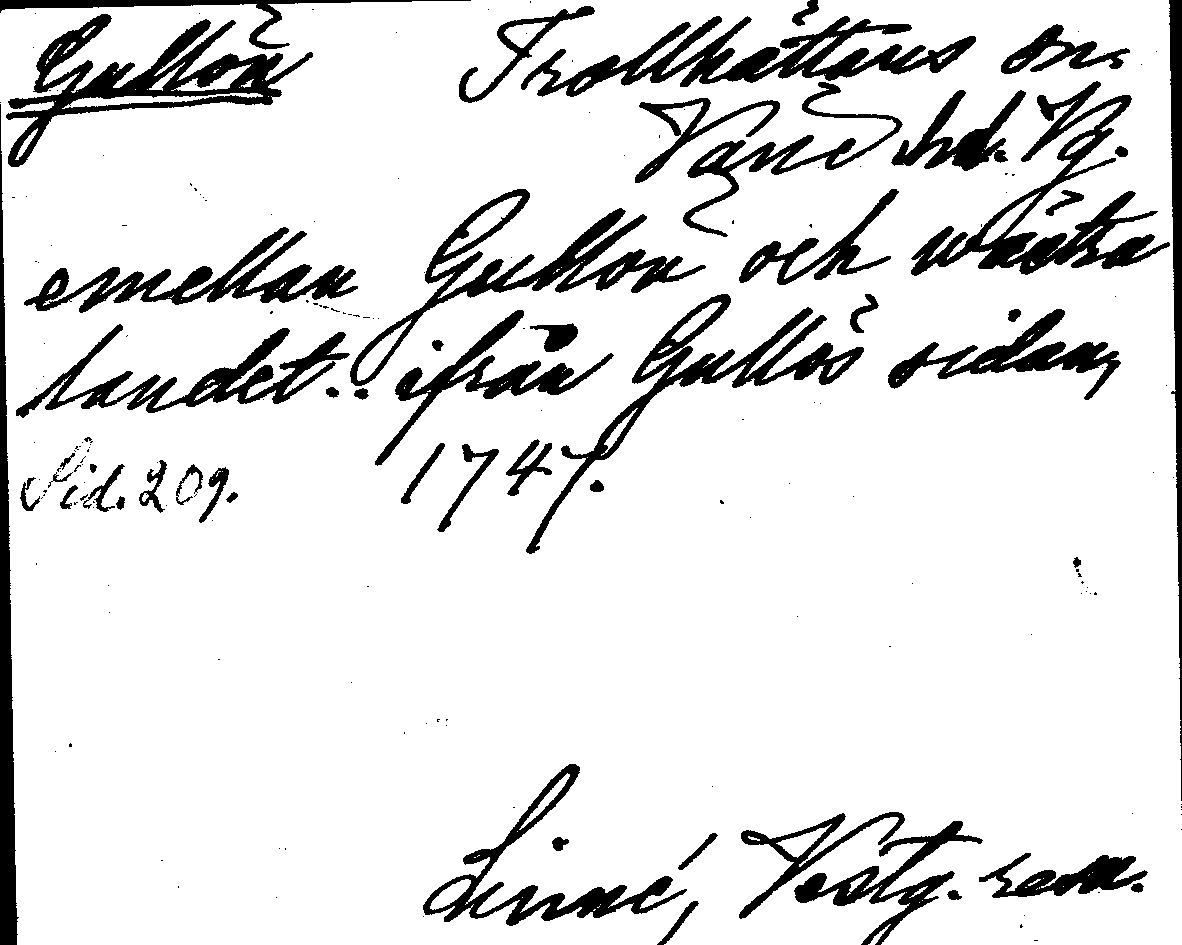 Gullön Trollhättans sn.
Väne hd. Vg.
emellan Gullön och wästra
landet.. ifrån Gullös sidan,
Sid. 209. 1747.
Linné, Vestg. resa.